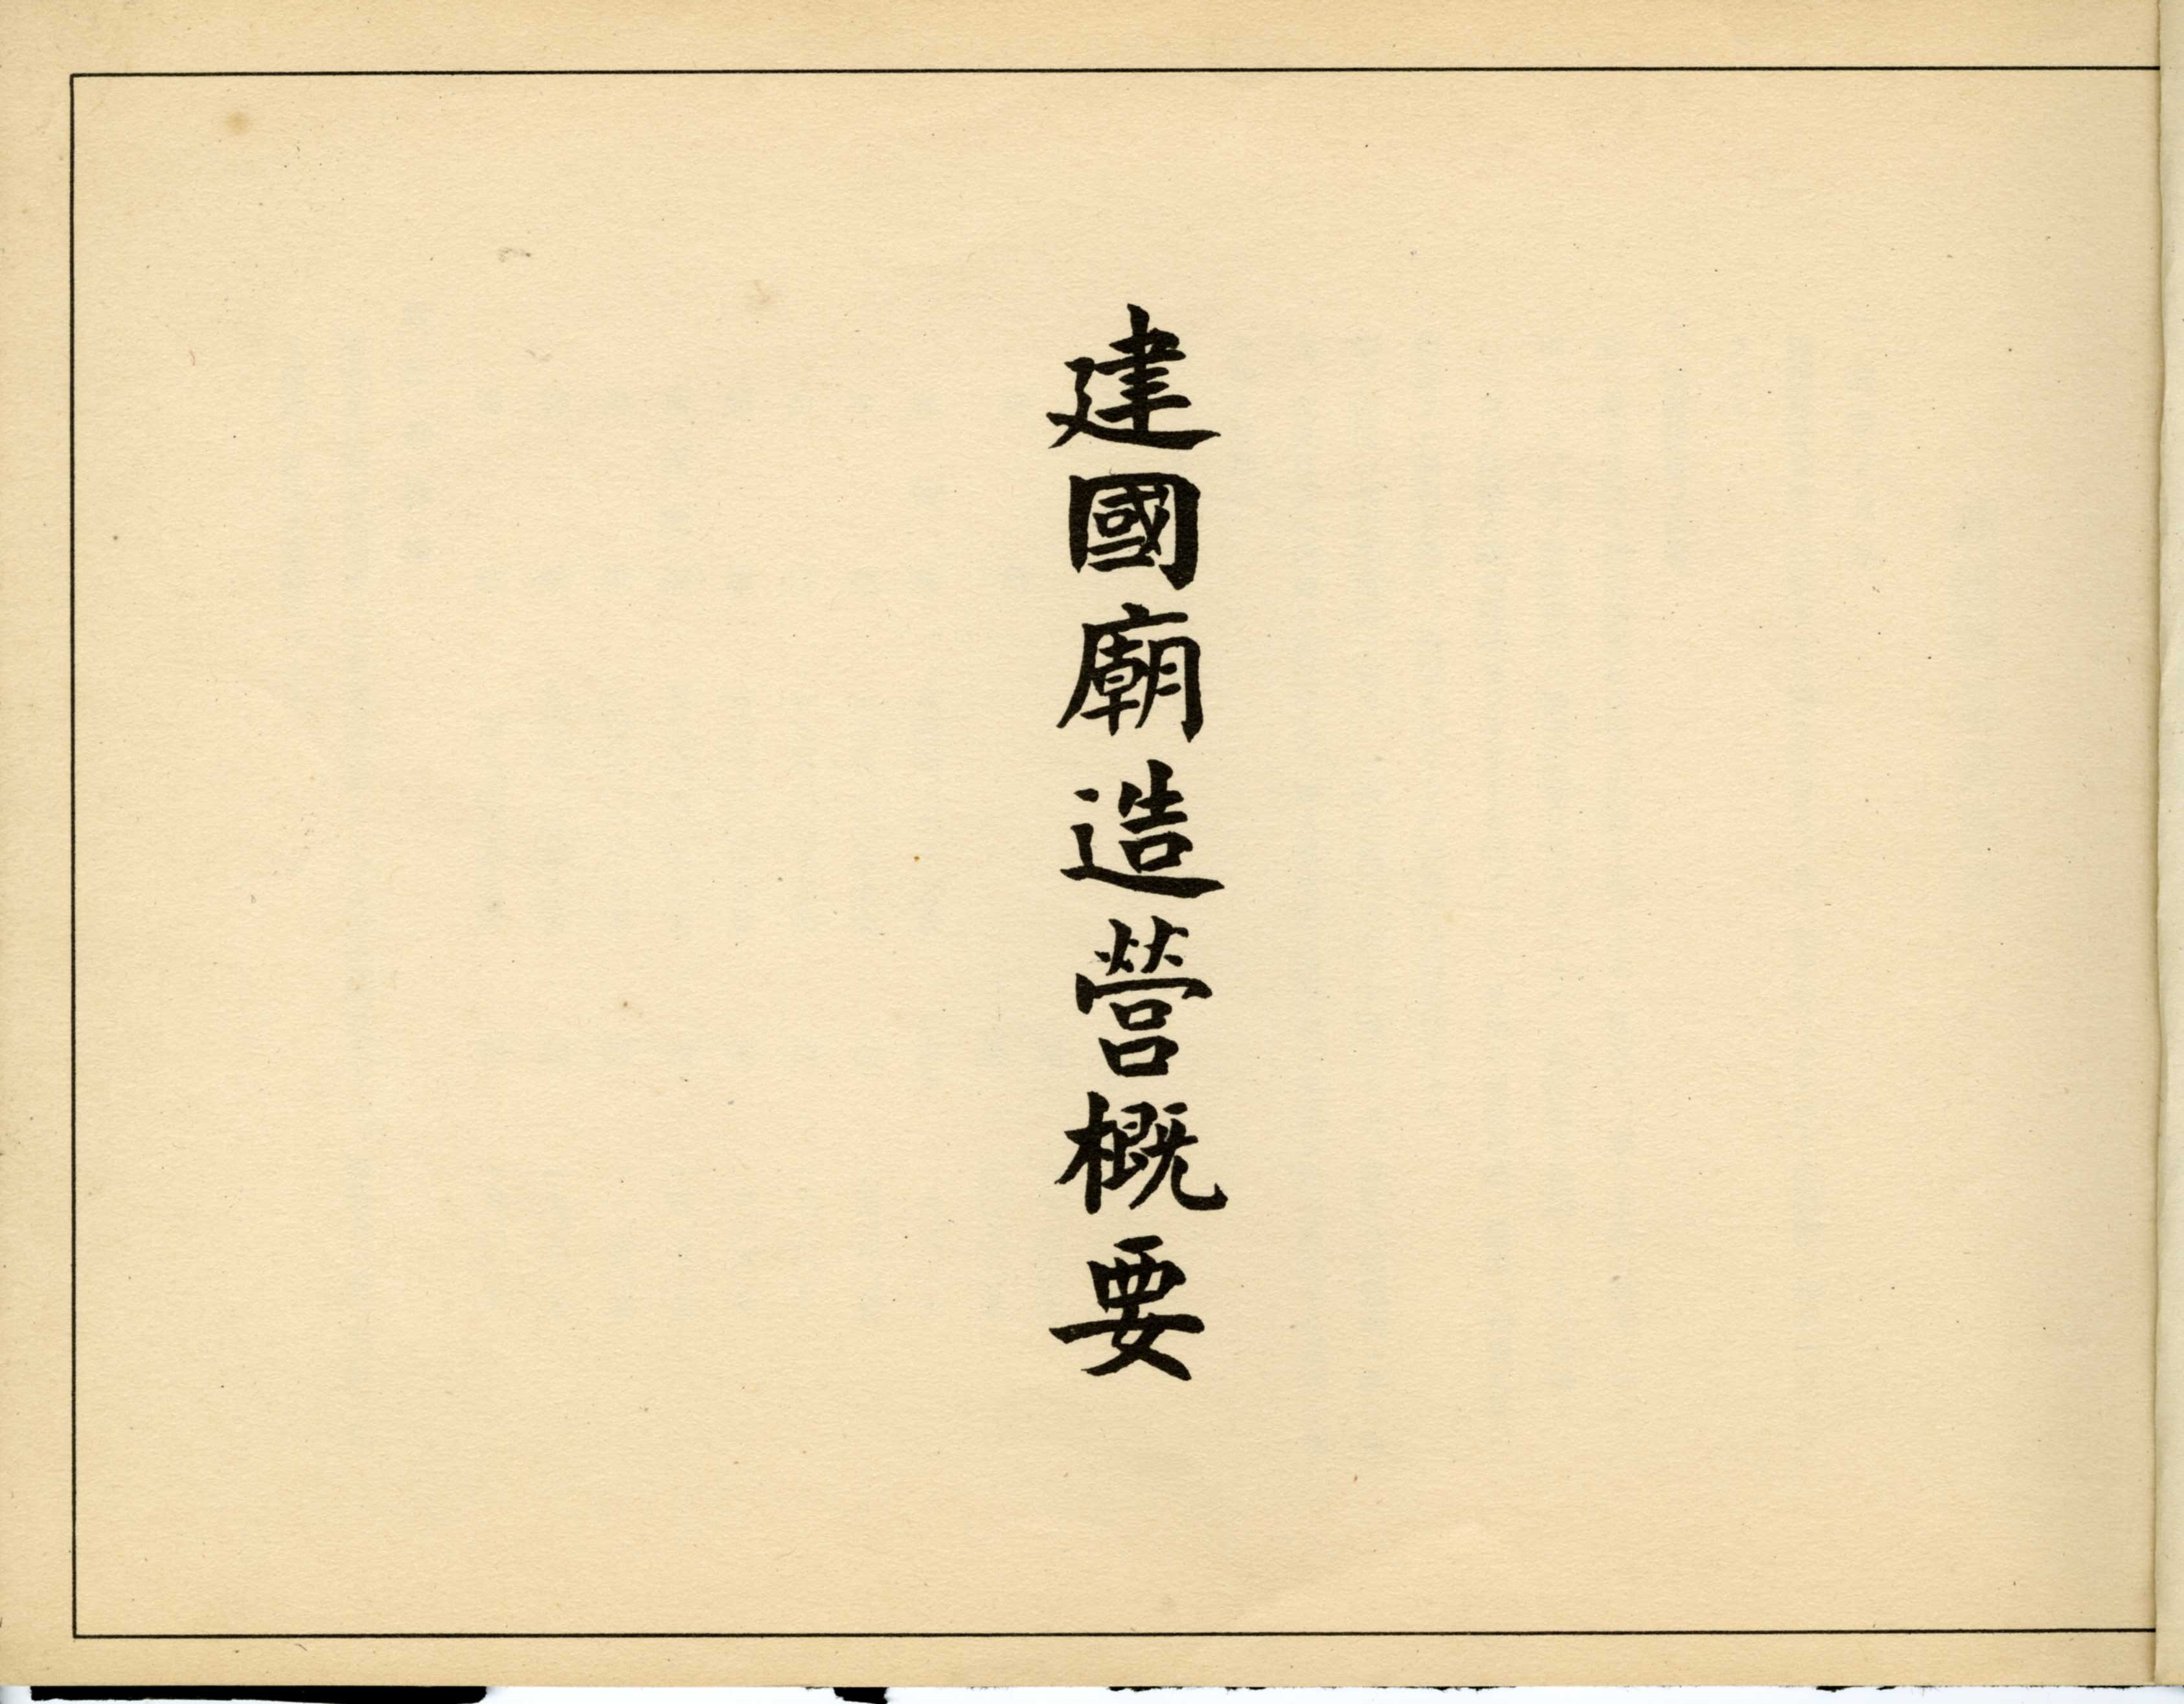 建國廟造營概要